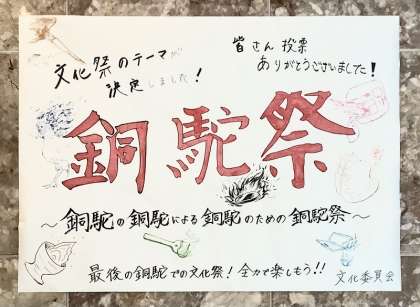 文化祭のテーマが
決定しました!
皆さん投票
ありがとうございました!
銅駝祭
~銅駝の銅駝による銅駝のための銅駝祭~
最後の銅駝での文化祭!全力で楽しもう!!
文化委員会